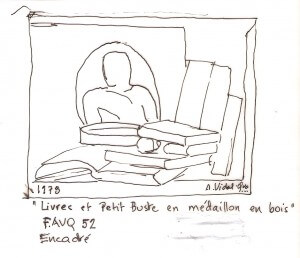 1978
A. Vidal
"Livres et Petit Buste en médaillon en bois"
F.AVQ 52
Encadré